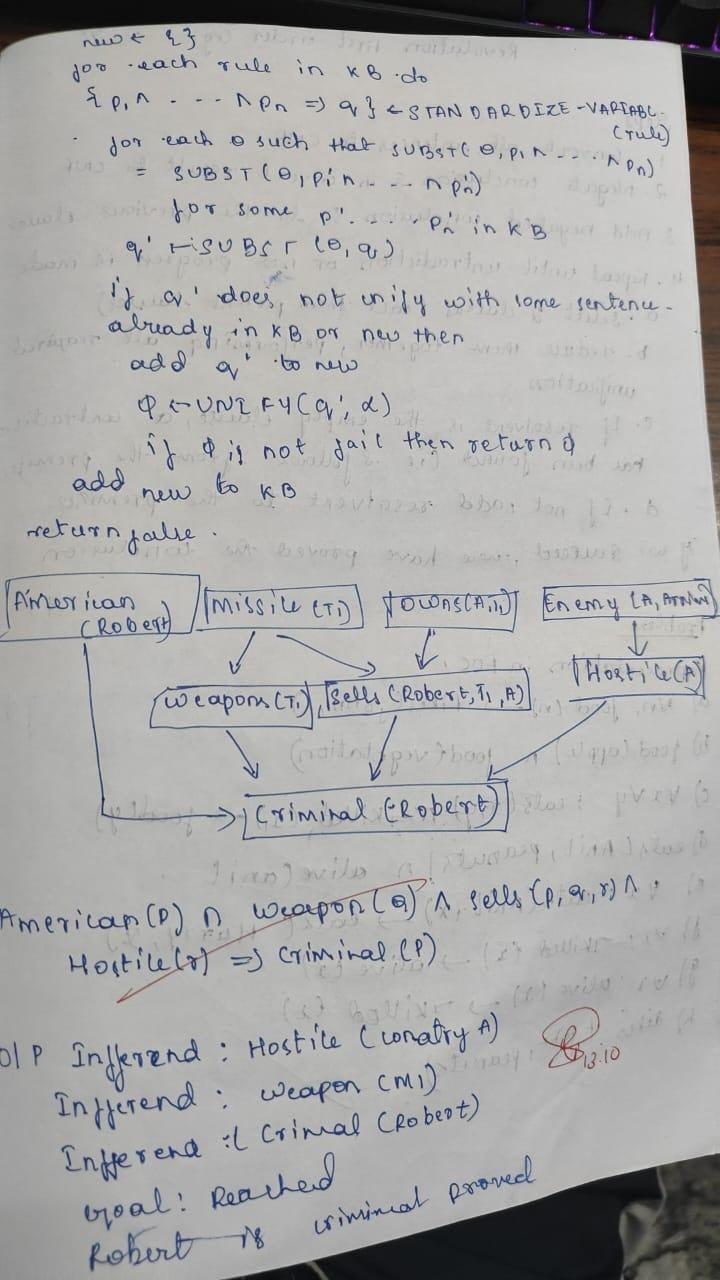 new ← {}
for each rule in KB do
{ p1 ∧ - - - ∧ pn => q } ← STANDARDIZE-VARIABL.
(rule)
for each θ such that SUBST(θ, p1 ∧ - - - ∧ pn)
= SUBST(θ, p1' ∧ - - - ∧ pn')
for some p' - - - - pn' in KB
q' ← SUBST (θ, q)
if q' does not unify with some sentence
already in KB or new then
add q' to new
φ ← UNIFY(q', α)
if φ is not fail then return φ
add new to KB
return false.
American (Robert) Missile (T1) Owns(A, T1) Enemy (A, America)
Weapons (T1) Sells (Robert, T1, A) Hostile(A)
Criminal (Robert)
American(p) ∩ Weapon(q) ∧ Sells (p, q, r) ∧
Hostile(r) => Criminal (P)
O/P Inferend : Hostile (Conatry A)
Infferend : Weapon (M1)
Infferend : Crimal (Robert)
Goal : Reached
Robert is criminal proved
13.10